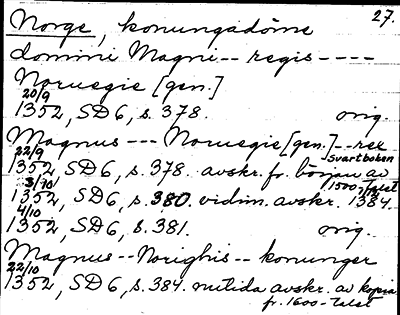 27.
Norge, konungadöme
domini Magni -- regis ----
Noruegie [gen.]
20/9
1352, SD6, s. 378. orig.
Magnus --- Noruegie [gen.] -- rex
22/9 Svartboken
1352, SD6, s. 378. avskr. fr. början av
3/10 1500-talet
1352, SD6, s. 380. vidim. avskr. 1384.
4/10
1352, SD6, s. 381. orig.
Magnus -- Norighis -- konunger
22/10
1352, SD6, s. 384. nutida avskr. av kopia
fr. 1600-talet